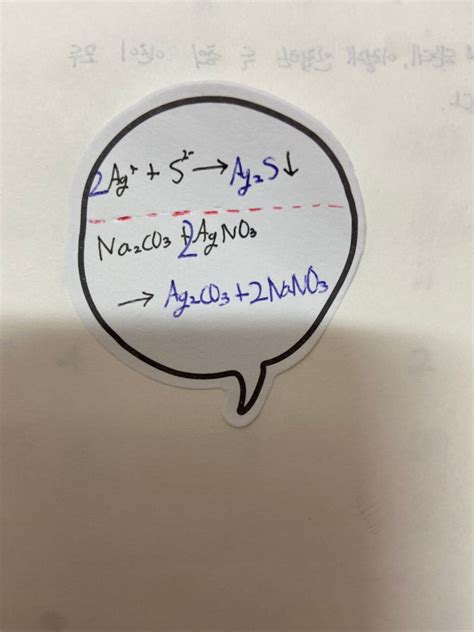 2Ag⁺ + S²⁻ → Ag₂S↓
Na₂CO₃ + 2AgNO₃
→ Ag₂CO₃ + 2NaNO₃